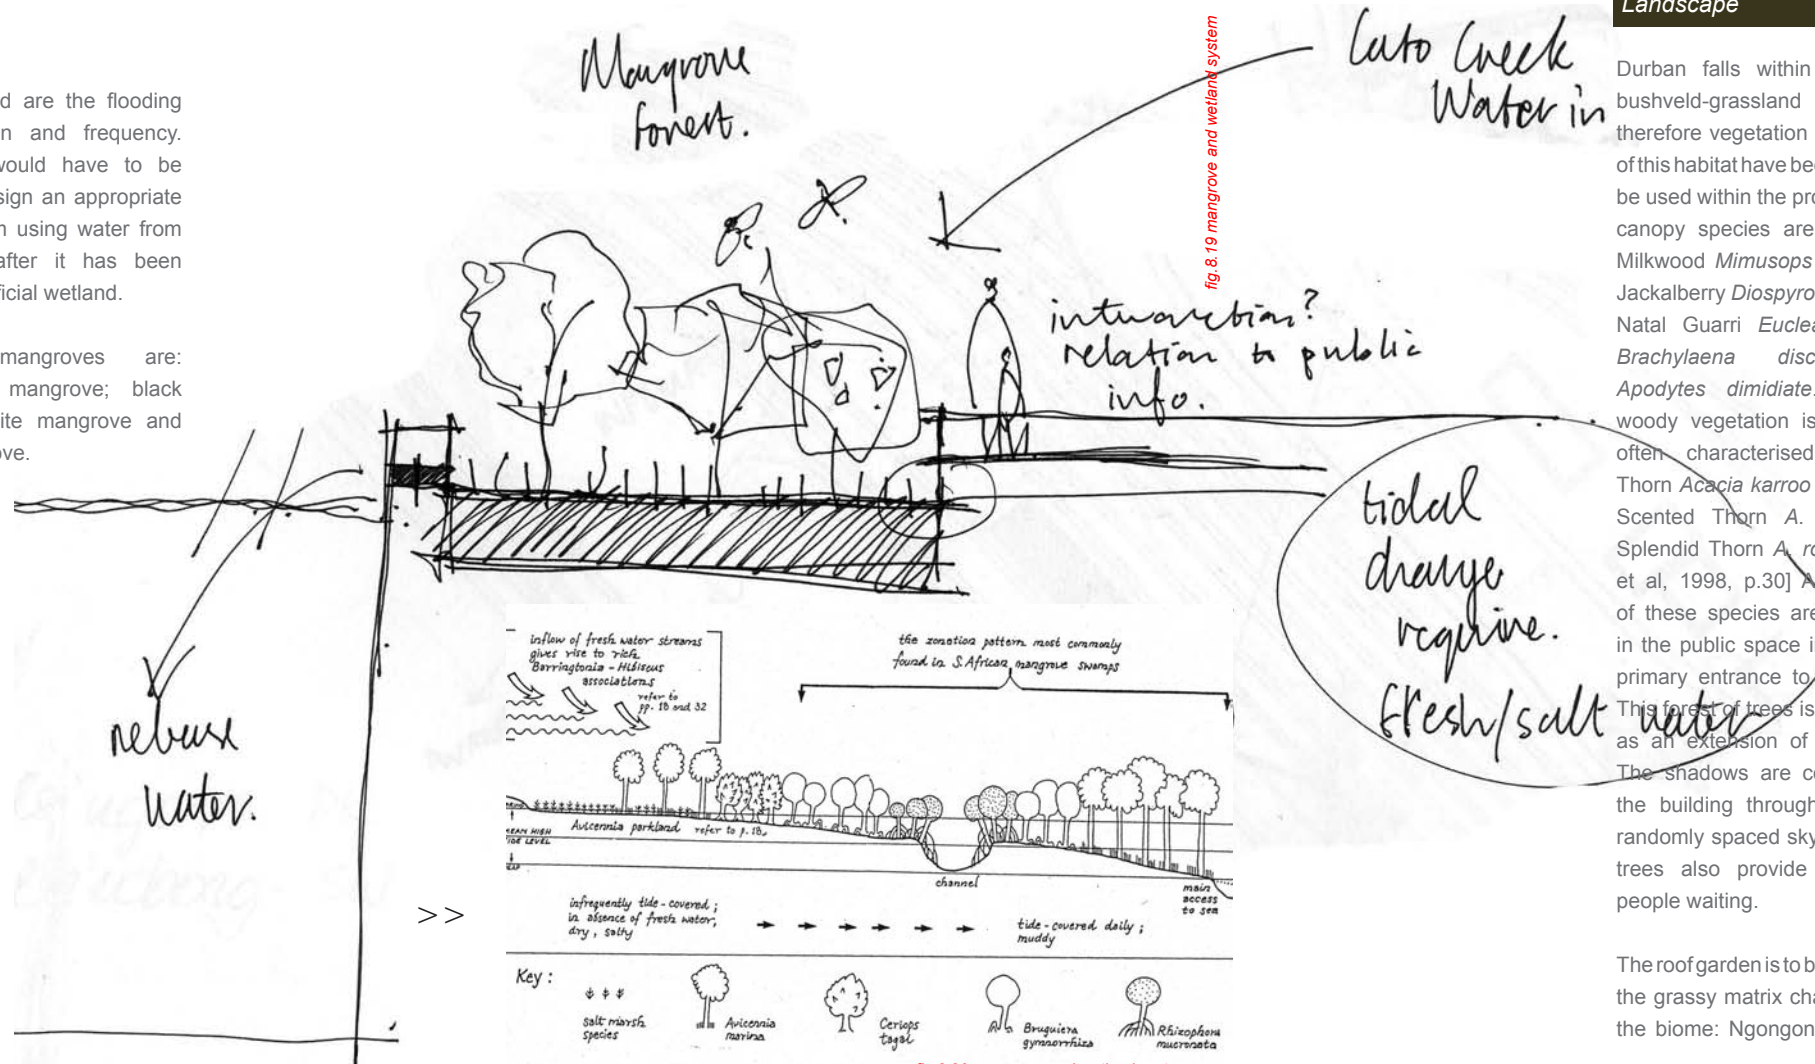 d are the flooding
n and frequency.
would have to be
sign an appropriate
n using water from
after it has been
ficial wetland.
mangroves are:
mangrove; black
ite mangrove and
ove.
Mangrove
forest.
fig.8.19 mangrove and wetland system
Cato Creek
Water in
interaction?
relation to public
info.
tidal
change
require.
fresh/salt water
release
water.
inflow of fresh water streams
gives rise to rich
Barringtonia - Hibiscus
associations
refer to
pp. 18 and 32
the zonation pattern most commonly
found in S. African mangrove swamps
MEAN HIGH
TIDE LEVEL
Avicennia parkland refer to p. 18.
channel
main
access
to sea
>>
infrequently tide-covered;
in absence of fresh water,
dry, salty
tide-covered daily;
muddy
Key:
salt marsh
species
Avicennia
marina
Ceriops
tagal
Bruguiera
gymnorrhiza
Rhizophora
mucronata
Landscape
Durban falls within
bushveld-grassland
therefore vegetation
of this habitat have bee
be used within the pro
canopy species are
Milkwood Mimusops
Jackalberry Diospyro
Natal Guarri Euclea
Brachylaena disc
Apodytes dimidiate.
woody vegetation is
often characterised
Thorn Acacia karroo
Scented Thorn A.
Splendid Thorn A. ro
et al, 1998, p.30] A
of these species are
in the public space i
primary entrance to
This forest of trees is
as an extension of
The shadows are c
the building through
randomly spaced sky
trees also provide
people waiting.
The roof garden is to b
the grassy matrix cha
the biome: Ngongon